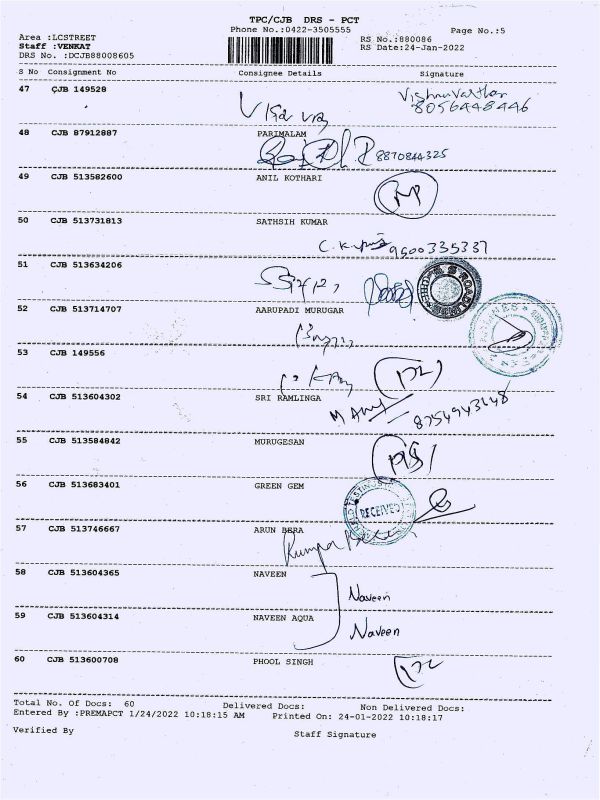 TPC/CJB DRS - PCT
Phone No.:0422-3505555
Page No.:5
Area :LCSTREET
RS No.:880086
Staff :VENKAT
RS Date:24-Jan-2022
DRS No. :DCJB88008605
S No Consignment No Consignee Details Signature
47 CJB 149528
Vishnuvarthan
8056448446
48 CJB 87912887 PARIMALAM
8870844325
49 CJB 513582600 ANIL KOTHARI
50 CJB 513731813 SATHSIH KUMAR
9500335337
51 CJB 513634206
52 CJB 513714707 AARUPADI MURUGAR
53 CJB 149556
54 CJB 513604302 SRI RAMLINGA
8754943148
55 CJB 513584842 MURUGESAN
56 CJB 513683401 GREEN GEM
RECEIVED
57 CJB 513746667 ARUN BERA
58 CJB 513604365 NAVEEN
Naveen
59 CJB 513604314 NAVEEN AQUA
Naveen
60 CJB 513600708 PHOOL SINGH
Total No. Of Docs: 60 Delivered Docs: Non Delivered Docs:
Entered By :PREMAPCT 1/24/2022 10:18:15 AM Printed On: 24-01-2022 10:18:17
Verified By Staff Signature